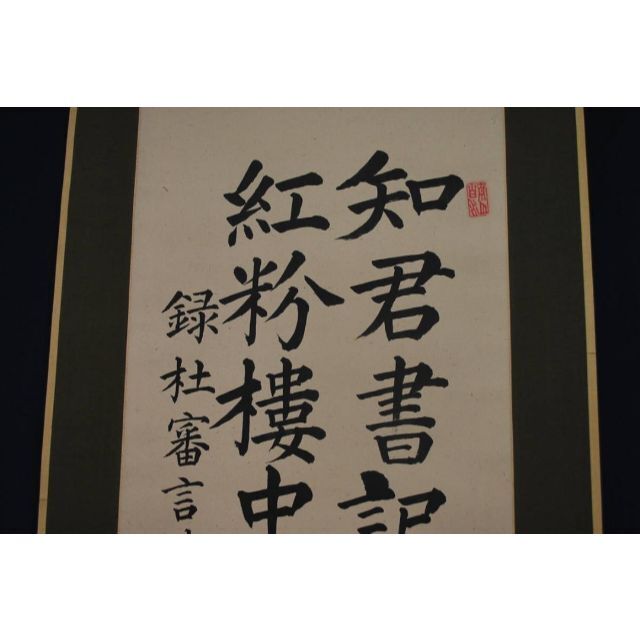 知君書記
紅粉樓中
録杜審言